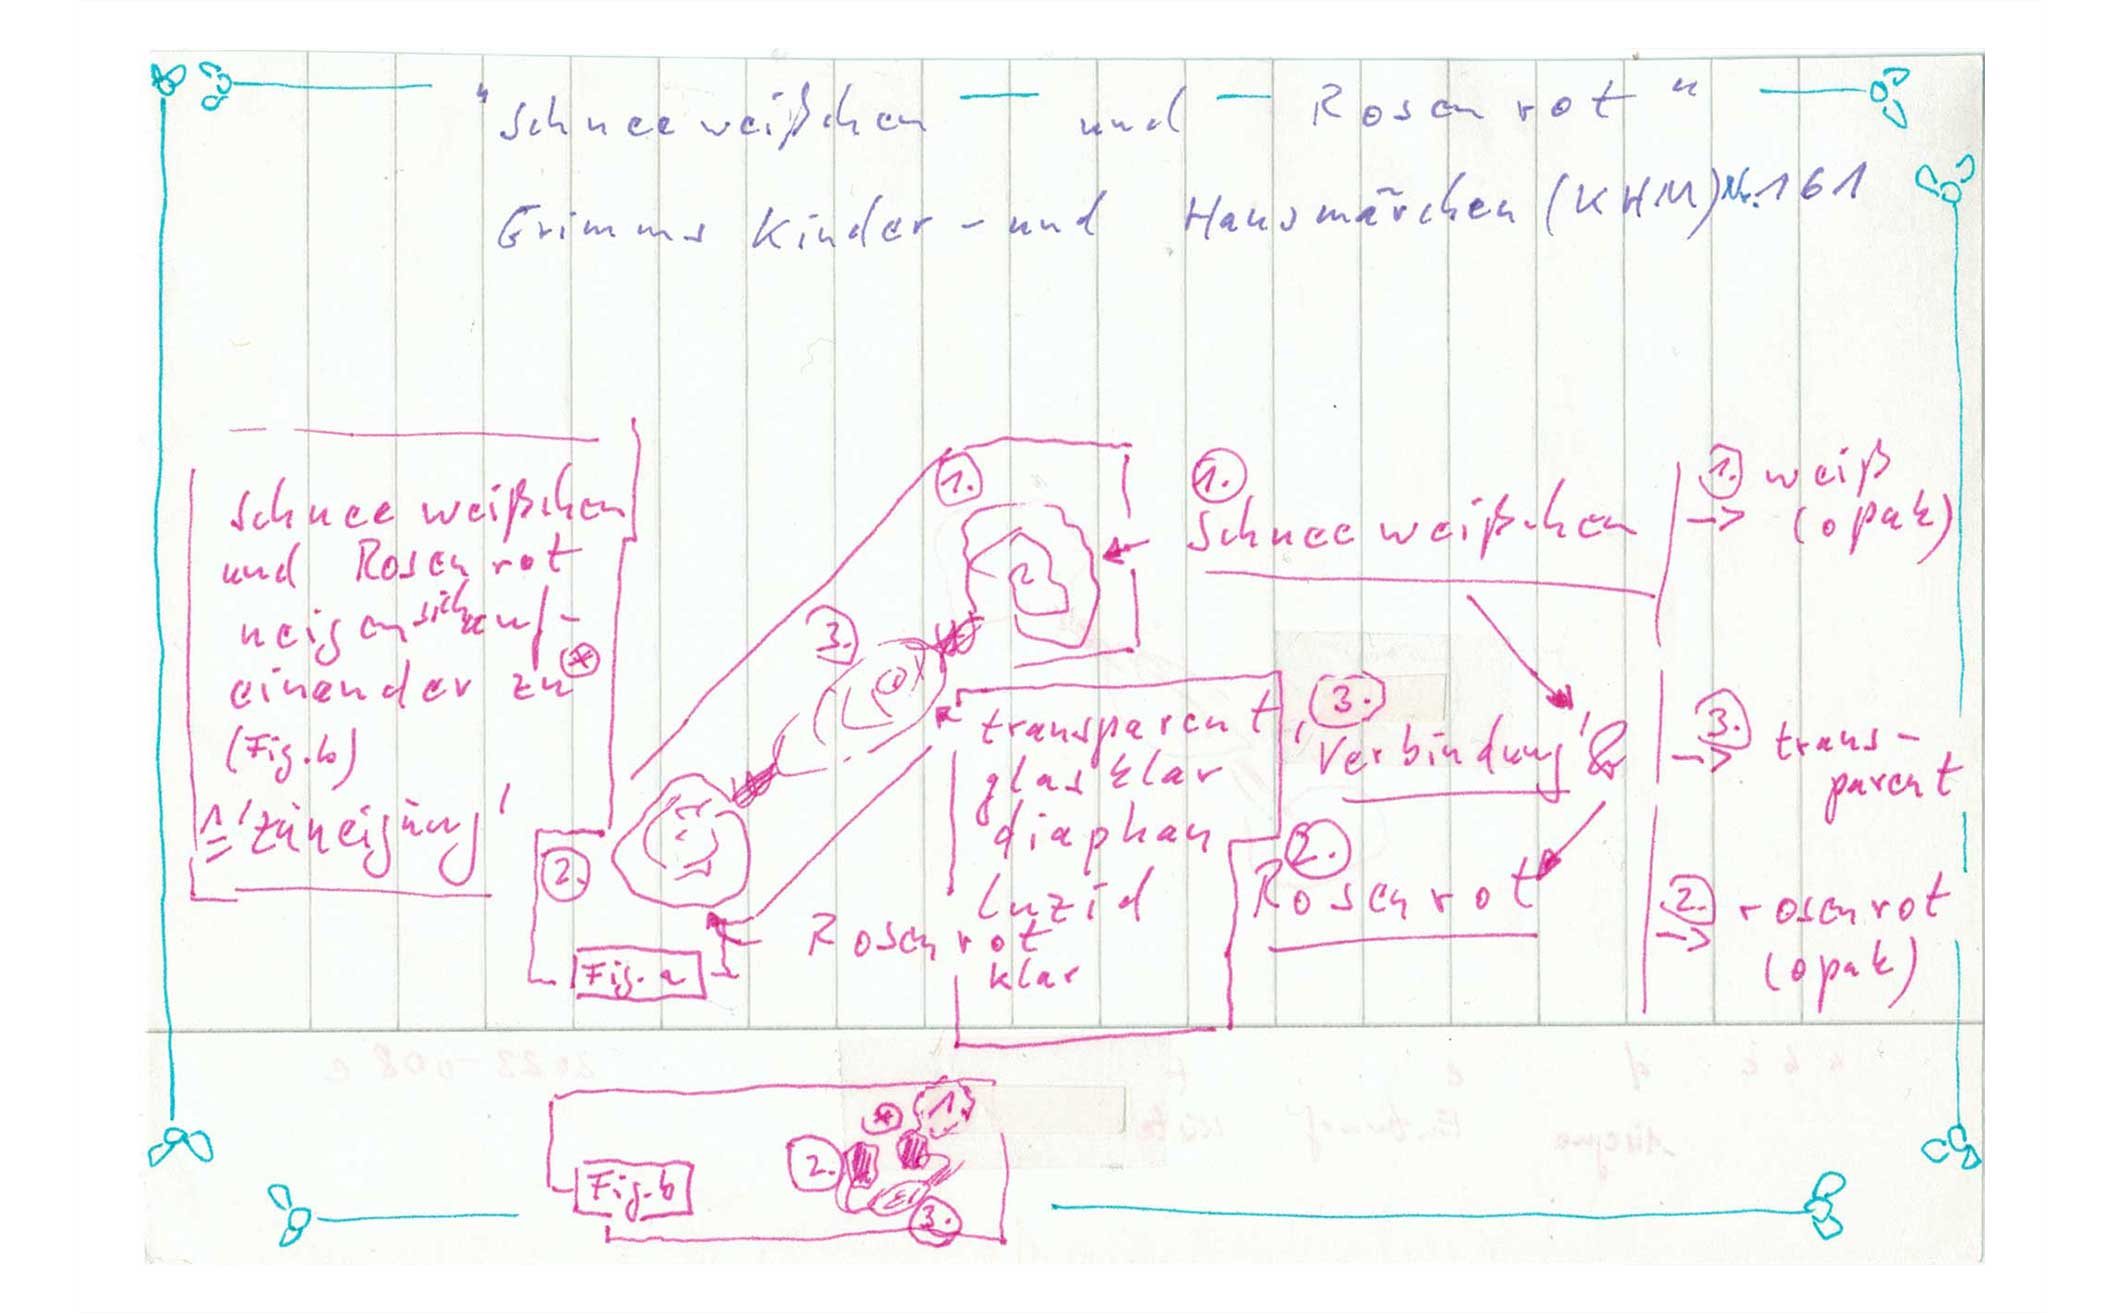 "Schneeweißchen — und — Rosenrot"
Grimms Kinder- und Hausmärchen (KHM) Nr. 161
Schneeweißchen
und Rosenrot
neigen sich auf-
einander zu *
(Fig. b)
≙ 'Zuneigung'
1.
3.
2.
Fig. a
Rosenrot
transparent
glasklar
diaphan
luzid
klar
1.
Schneeweißchen
3.
'Verbindung' &
2.
Rosenrot
1. weiß
-> (opak)
3. trans-
-> parent
2. rosenrot
-> (opak)
Fig. b
* 1
2.
3.
2023-008 c